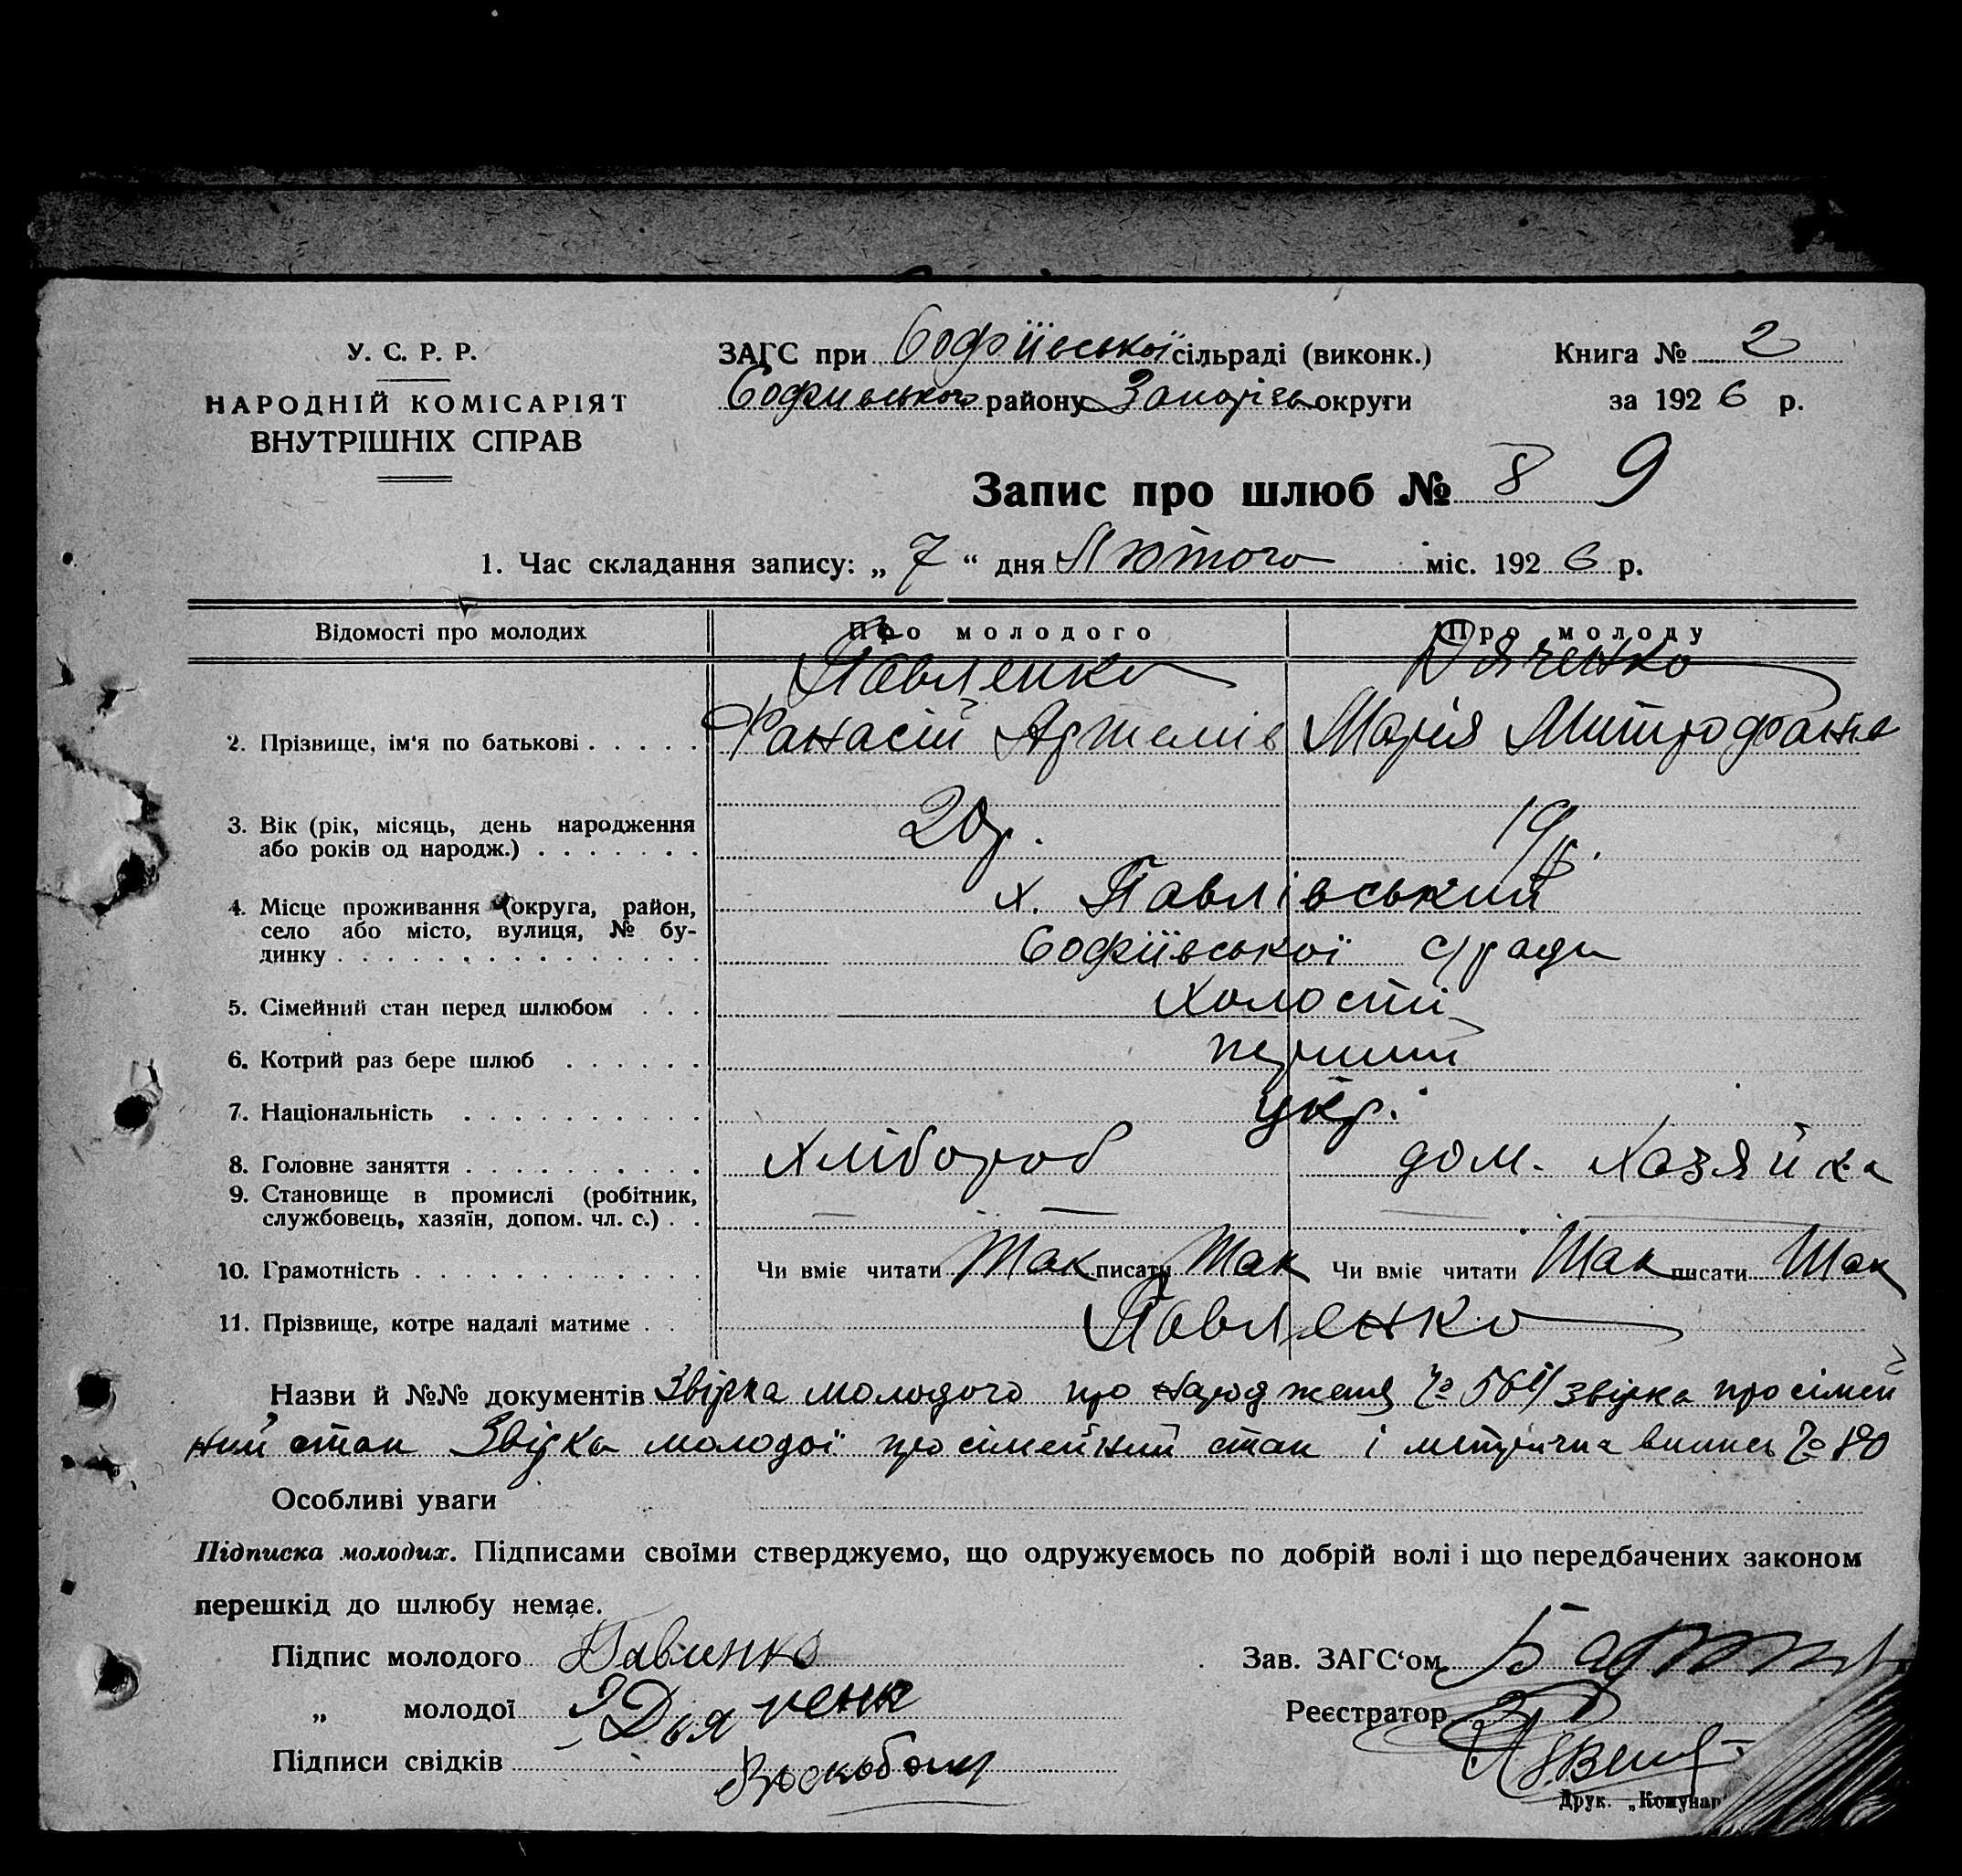 У. С. Р. Р.
НАРОДНІЙ КОМІСАРІЯТ
ВНУТРІШНІХ СПРАВ
ЗАГС при Софіївської сільраді (виконк.)
Софиевського району Запорізь округи
Книга № 2
за 1926 р.
Запис про шлюб № 8 9
1. Час складання запису: „ 7 “ дня Лютого міс. 1926 р.
Відомості про молодих Про молодого Про молоду
Павленко Дяченко
2. Прізвище, ім'я по батькові . . . . . Фанасій Артемів Марія Митрофанов
3. Вік (рік, місяць, день народження 20 р. 19 р.
або років од народж.) . . . . . . .
4. Місце проживання (округа, район, х. Павлівський
село або місто, вулиця, № бу-
динку . . . . . . . . . . . . . . . Софіївської с/ради
5. Сімейний стан перед шлюбом . . . Холості
6. Котрий раз бере шлюб . . . . . . перший
7. Національність . . . . . . . . . . укр.
8. Головне заняття . . . . . . . . . . Хлібороб дом. Хазяйка
9. Становище в промислі (робітник,
службовець, хазяїн, допом. чл. с.) . . — — —
10. Грамотність . . . . . . . . . . . . . Чи вміє читати Так писати Так Чи вміє читати Так писати Так
11. Прізвище, котре надалі матиме . . Павленко
Назви й №№ документів Звірка молодого про народженя № звірка про сімей
ний стан Звірка молодої про сімейний стан і метрична випись №
Особливі уваги
Підписка молодих. Підписами своїми стверджуємо, що одружуємось по добрій волі і що передбачених законом
перешкід до шлюбу немає.
Підпис молодого Павинко
„ молодої Дьяченк
Підписи свідків
Зав. ЗАГС'ом
Реєстратор
Друк. „Комунар